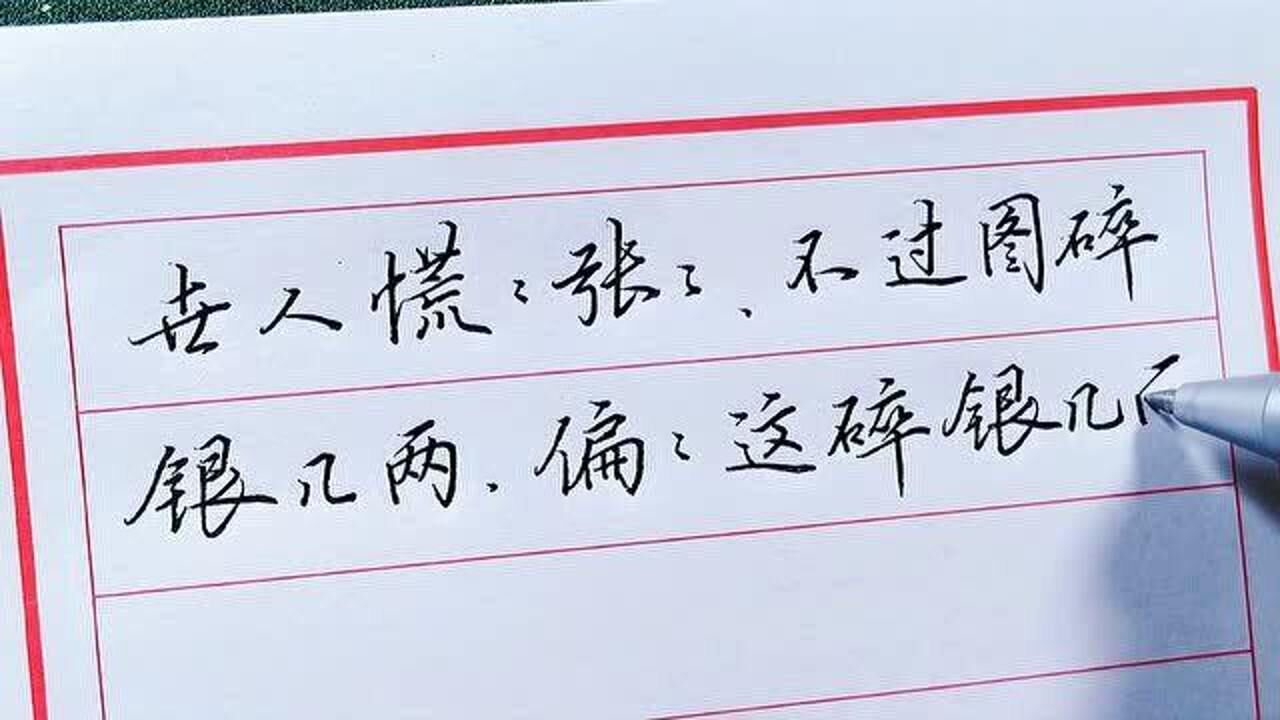 世人慌々张々、不过图碎
银几两.偏々这碎银几